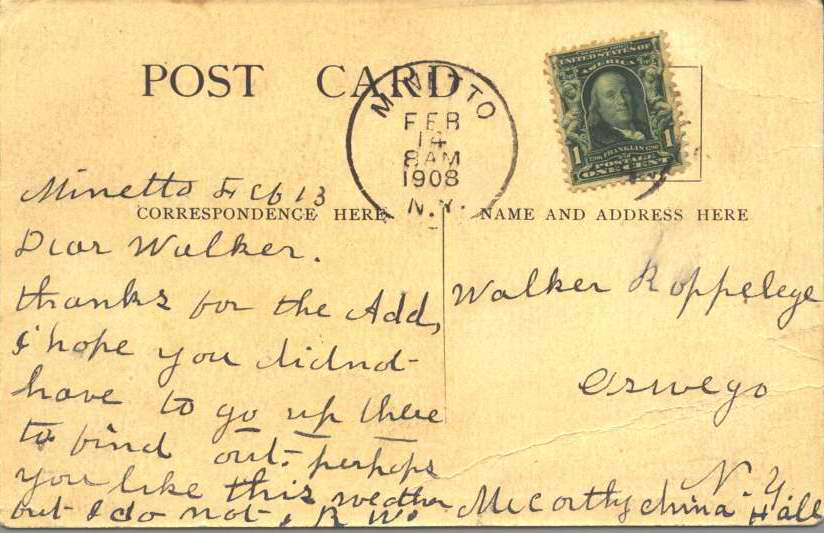 POST CARD
MINETTO
FEB
14
8 AM
1908
N.Y.
UNITED STATES OF
AMERICA
1 1
FRANKLIN
POSTAGE
ONE CENT
CORRESPONDENCE HERE
NAME AND ADDRESS HERE
Minetto Feb 13
Dear Walker.
thanks for the Add,
i hope you didnot
have to go up there
to find out. perhaps
you like this weather
but I do not. R W.
Walker Roppeleye
Oswego
N-Y.
McCorthy china Hall